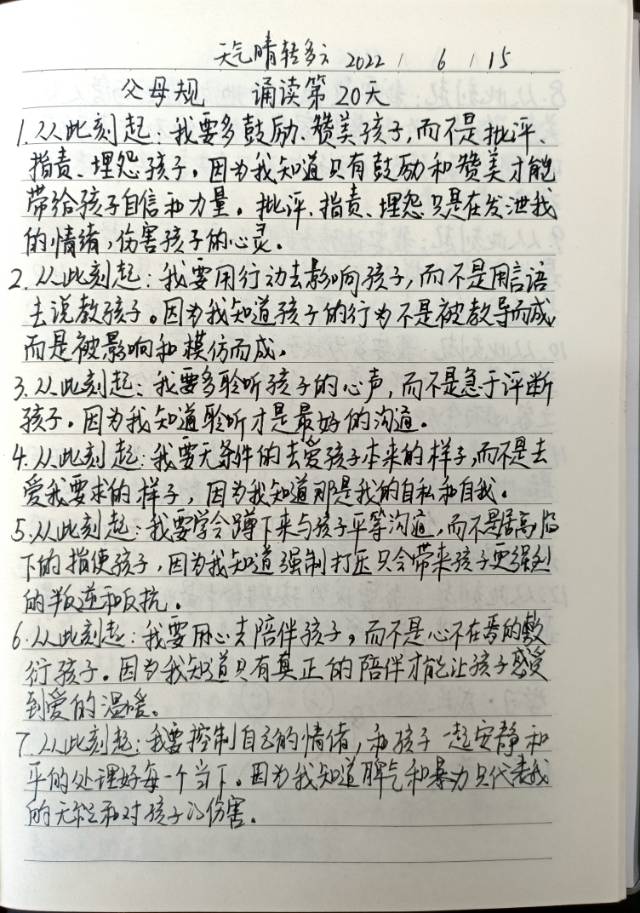 天气晴转多云 2022 / 6 / 15
父母规 诵读第20天
1.从此刻起:我要多鼓励、赞美孩子,而不是批评、
指责、埋怨孩子。因为我知道只有鼓励和赞美才能
带给孩子自信和力量。批评、指责、埋怨只是在发泄我
的情绪,伤害孩子的心灵。
2.从此刻起:我要用行动去影响孩子,而不是用言语
去说教孩子。因为我知道孩子的行为不是被教导而成,
而是被影响和模仿而成。
3.从此刻起:我要多聆听孩子的心声,而不是急于评断
孩子。因为我知道聆听才是最好的沟通。
4.从此刻起:我要无条件的去爱孩子本来的样子,而不是去
爱我要求的样子,因为我知道那是我的自私和自我。
5.从此刻起:我要学会蹲下来与孩子平等沟通,而不是居高临
下的指使孩子,因为我知道强制打压只会带来孩子更强烈
的叛逆和反抗。
6.从此刻起:我要用心去陪伴孩子,而不是心不在焉的敷
衍孩子。因为我知道只有真正的陪伴才能让孩子感受
到爱的温暖。
7.从此刻起:我要控制自己的情绪,和孩子一起安静和
平的处理好每一个当下。因为我知道脾气和暴力只代表我
的无能和对孩子的伤害。